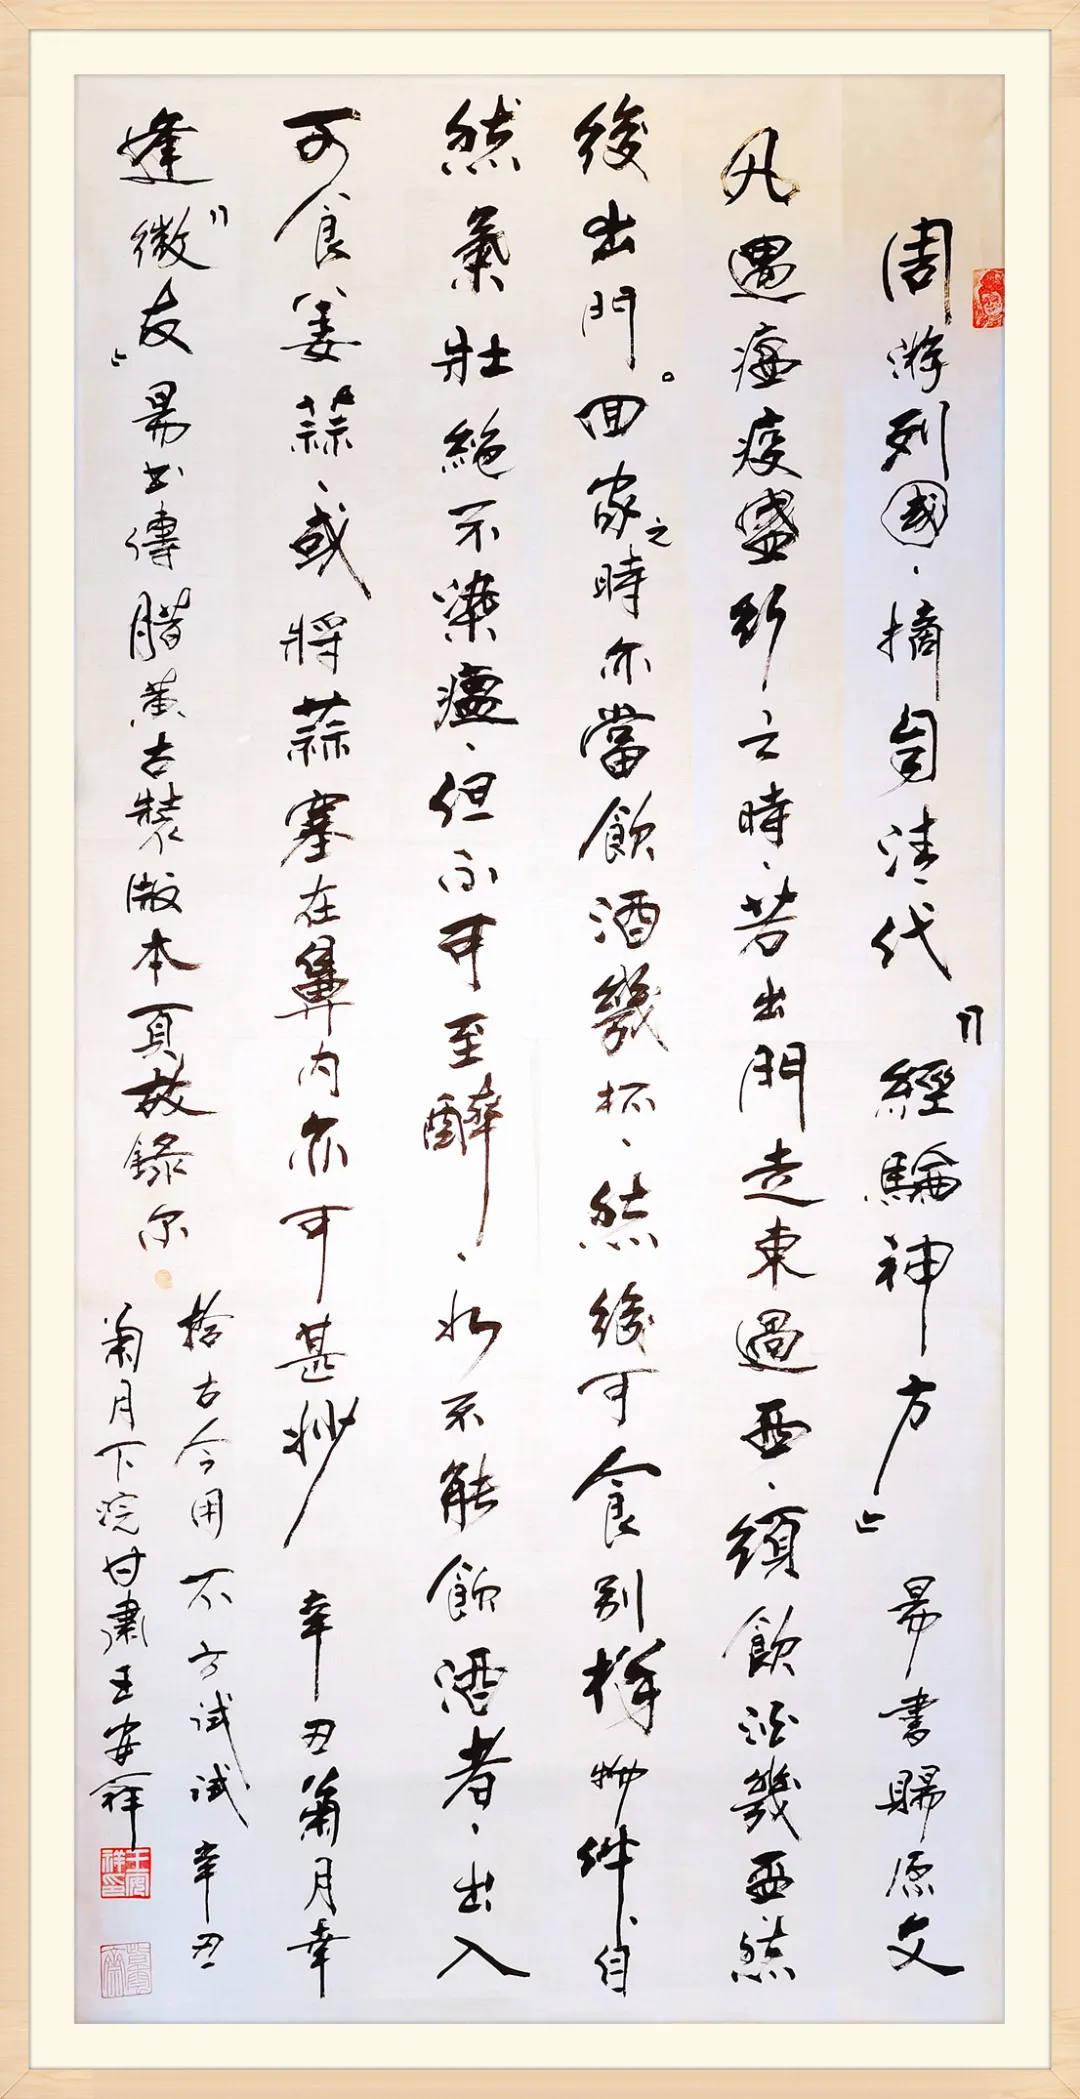 周游列國、摘自清代『經驗神方』易書賜原文
凡遇瘟疫盛行之時、若出門走東過西、須飲酒幾西然
後出門。回家之時亦當飲酒幾杯、然後可食別樣物件、自
然氣壯絕不染瘟、但不可至醉、如不能飲酒者、出入
可食姜蒜、或將蒜塞在鼻內亦可甚妙 辛丑菊月幸
逢『微友』易書傳腊黄古裝散本頁故錄尔
拾古今用不方試試 辛丑
菊月下浣甘肅王安祥
王安祥印